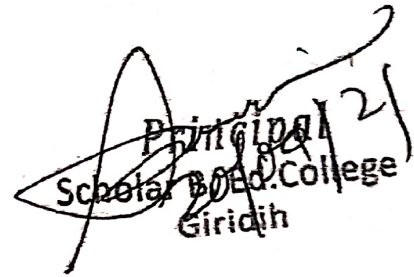 Principal
Scholar B.Ed.College
Giridih